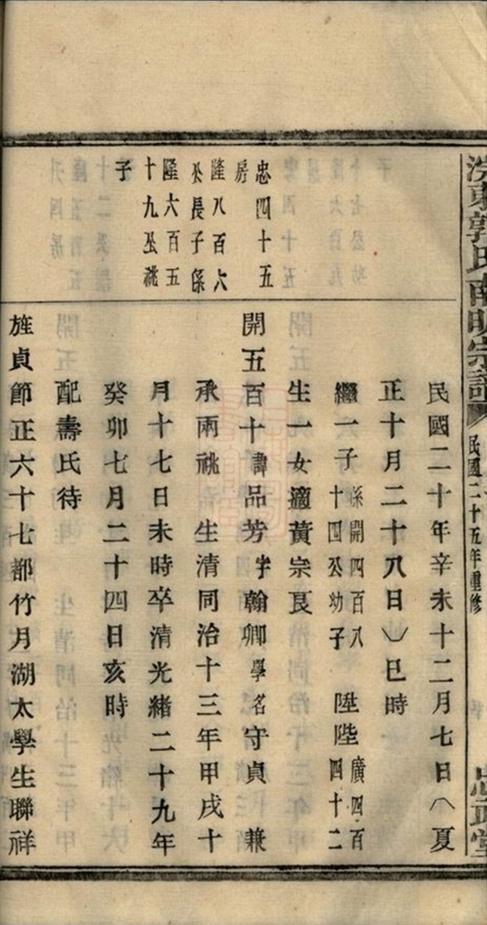 洪東郭氏南明宗譜
民國二十五年重修
忠政堂
民國二十年辛未十二月七日(八夏
正十月二十八日)巳時
繼一子係開四百八十四公幼子陞陛廣四百四十二
生一女適黃宗良
忠四十五
房
隆八百六
公長子係
隆六百五
十九公祧
子
開五百十諱品芳字翰卿學名守貞兼
承兩祧 生清同治十三年甲戌十
月十七日未時卒清光緒二十九年
癸卯七月二十四日亥時
配壽氏待
旌貞節正六十七都竹月湖太學生聯祥